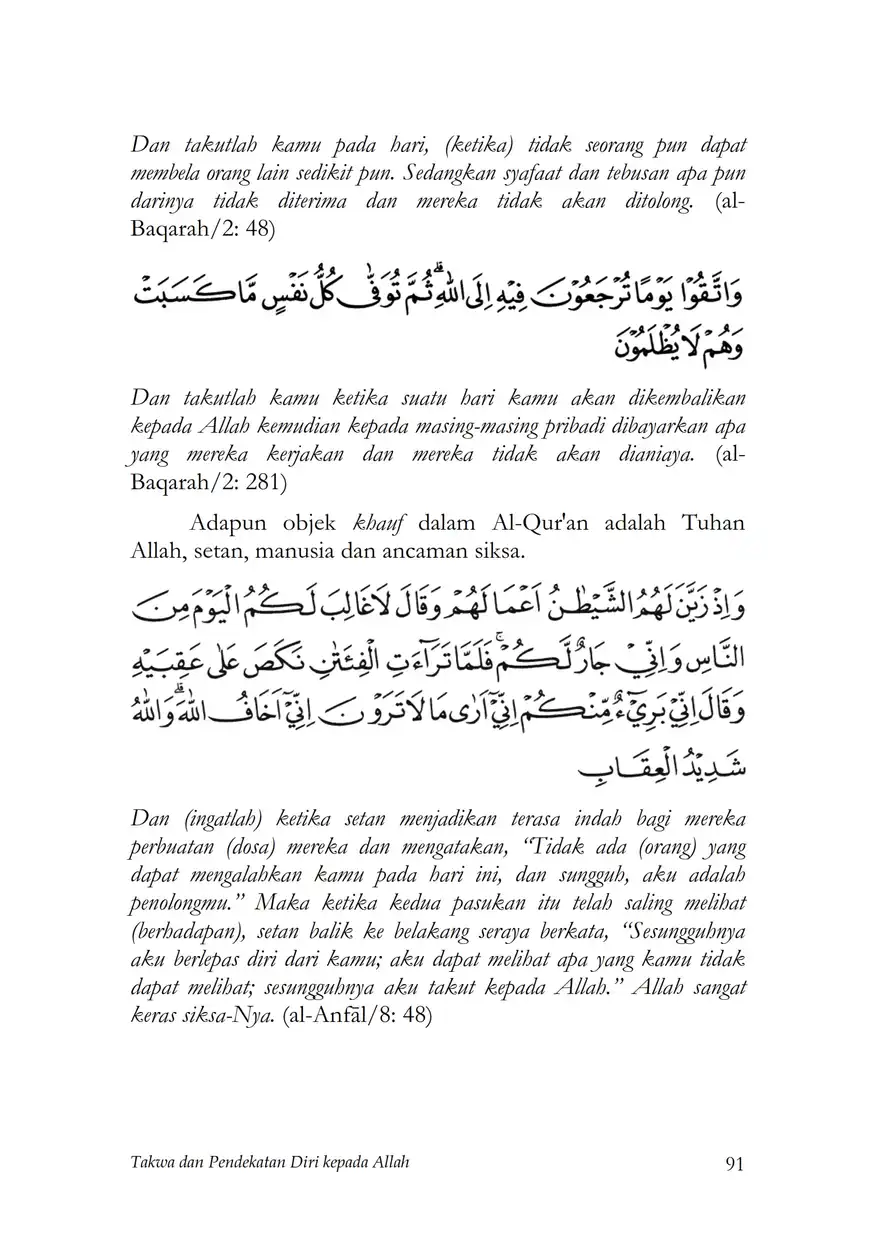 Dan takutlah kamu pada hari, (ketika) tidak seorang pun dapat
membela orang lain sedikit pun. Sedangkan syafaat dan tebusan apa pun
darinya tidak diterima dan mereka tidak akan ditolong. (al-
Baqarah/2: 48)
وَاتَّقُوْا يَوْمًا تُرْجَعُوْنَ فِيْهِ اِلَى اللّٰهِ ۗ ثُمَّ تُوَفّٰى كُلُّ نَفْسٍ مَّا كَسَبَتْ
وَهُمْ لَا يُظْلَمُوْنَ
Dan takutlah kamu ketika suatu hari kamu akan dikembalikan
kepada Allah kemudian kepada masing-masing pribadi dibayarkan apa
yang mereka kerjakan dan mereka tidak akan dianiaya. (al-
Baqarah/2: 281)
Adapun objek khauf dalam Al-Qur'an adalah Tuhan
Allah, setan, manusia dan ancaman siksa.
وَاِذْ زَيَّنَ لَهُمُ الشَّيْطٰنُ اَعْمَالَهُمْ وَقَالَ لَا غَالِبَ لَكُمُ الْيَوْمَ مِنَ
النَّاسِ وَاِنِّيْ جَارٌ لَّكُمْۚ فَلَمَّا تَرَاۤءَتِ الْفِئَتٰنِ نَكَصَ عَلٰى عَقِبَيْهِ
وَقَالَ اِنِّيْ بَرِيْۤءٌ مِّنْكُمْ اِنِّيْٓ اَرٰى مَا لَا تَرَوْنَ اِنِّيْٓ اَخَافُ اللّٰهَ ۗوَاللّٰهُ
شَدِيْدُ الْعِقَابِ
Dan (ingatlah) ketika setan menjadikan terasa indah bagi mereka
perbuatan (dosa) mereka dan mengatakan, “Tidak ada (orang) yang
dapat mengalahkan kamu pada hari ini, dan sungguh, aku adalah
penolongmu.” Maka ketika kedua pasukan itu telah saling melihat
(berhadapan), setan balik ke belakang seraya berkata, “Sesungguhnya
aku berlepas diri dari kamu; aku dapat melihat apa yang kamu tidak
dapat melihat; sesungguhnya aku takut kepada Allah.” Allah sangat
keras siksa-Nya. (al-Anfāl/8: 48)
Takwa dan Pendekatan Diri kepada Allah 91